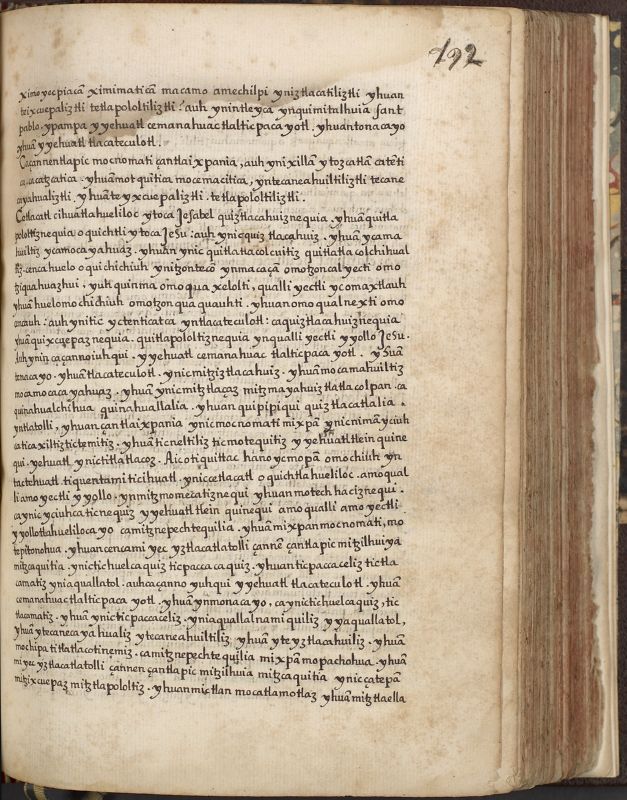 192
ximo yecpiacā ximimaticā macamo amechilpi yniztlacatiliztli yhuan
teixcuepaliztli tetlapololtiliztli: auh ynintleyca ynquimitalhuia sant
pablo. ypampa yyehuatl cemanahuac tlalticpaca yotl. yhuan tonacayo
yhuā yyehuatl tlacateculotl.
Ca çannentlapic mocnomati çantlaixpania, auh ynixillā ytozcatlā catēti
ca, cacatzcatica. yhuā motquitica mocemacitica, yntecaneahuiltiliztli tecane
cayahualiztli. yhuā teyxcuepaliztli. tetlapololtiliztli.
Ce tlacatl cihuatlahueliloc ytoca Jesabel quiztlacahuiznequia. yhuā quitla
polotiznequia oquichtli ytoca JeSu: auh ynic quiztlacahuiz. yhuā ycama
huiltiz ycamocayahuaz. yhuan ynic quitlatlacolcuitiz quitlatlacolchihual
tiz. cenca huelo oquichichiuh ynitzonteco ynmacaçā omotzoncalyecti omo
tziquahuazhui, yuh quinma omoqua xelolti, qualli yectli ycomaxtlauh
yhuā huelomochichiuh omotzonquaquauhti. yhuan omoqualnexti omo
: auh ynitic yctenticatca yntlacateculotl: ca quiztlacahuiznequia
yhuā quixcuepaznequia. quitlapololtiznequia ynqualli yectli yyollo JeSu.
Auh ynin ca çannoiuhqui. yyehuatl cemanahuac tlalticpaca yotl. ySuā
tonacayo. yhuā tlacateculotl. ynic mitziztlacahuiz. yhuā mocamahuiltiz
mocamocacayahuaz. yhuā ynic mitztlaçaz mitzmayahuiz tlatlacolpan. ca
quinahualchihua quinahuallalia. yhuan quipipiqui quiztlacatlalia.
yntlatolli, yhuan çantlaixpania ynic mocnomati mixpā ynic nimā yciuh
catica xiltiz tictemitiz. yhuā tic neltiliz ticmotequitiz yyehuatl tlein quine
qui. yehuatl ynictitlatlacoz. Aic otiquittac hano ycmopā omochiuh yn
tactehuatl tiquentami ticihuatl. ynic cetlacatl oquichtlahueliloc. amo qual
li amo yectli yyollo. ynmitzmomecatiznequi yhuan motech haciznequi.
ca ynic yciuhca ticnequiz yyehuatl tlein quinequi amo qualli amo yectli.
yyollotlahuelilocayo ca mitznepechtequilia. yhuā mixpan mocnomati, mo
tepitonohua. yhuan cencamiyec yztlacatlatolli çannē çantlapic mitzilhuiya
mitzcaquitia. ynictichuelcaquiz ticpaccacaquiz. yhuan ticpaccaceliz tictla
camatiz yniaquallatol. auh ca çanno yuhqui yyehuatl tlacateculotl. yhuā
cemanahuac tlalticpaca yotl. yhuā ynmonacayo, ca ynictichuelcaquiz, tic
tlacamatiz. yhuā ynic ticpaccaceliz. yniaquallalnamiquiliz yyaquallatol,
yhuā ytecanecayahualiz ytecaneahuiltiliz, yhuā yteyztlacahuiliz. yhuā
mochipa titlatlacotinemiz. ca mitznepechtequilia mixpā mopachohua. yhuā
miyec yztlacatlatolli çannen çantlapic mitzilhuia mitzcaquitia ynicçatepā
mitzixcuepaz mitztlapololtiz. yhuan mictlan mocatlamotlaz yhuā mitztlaella